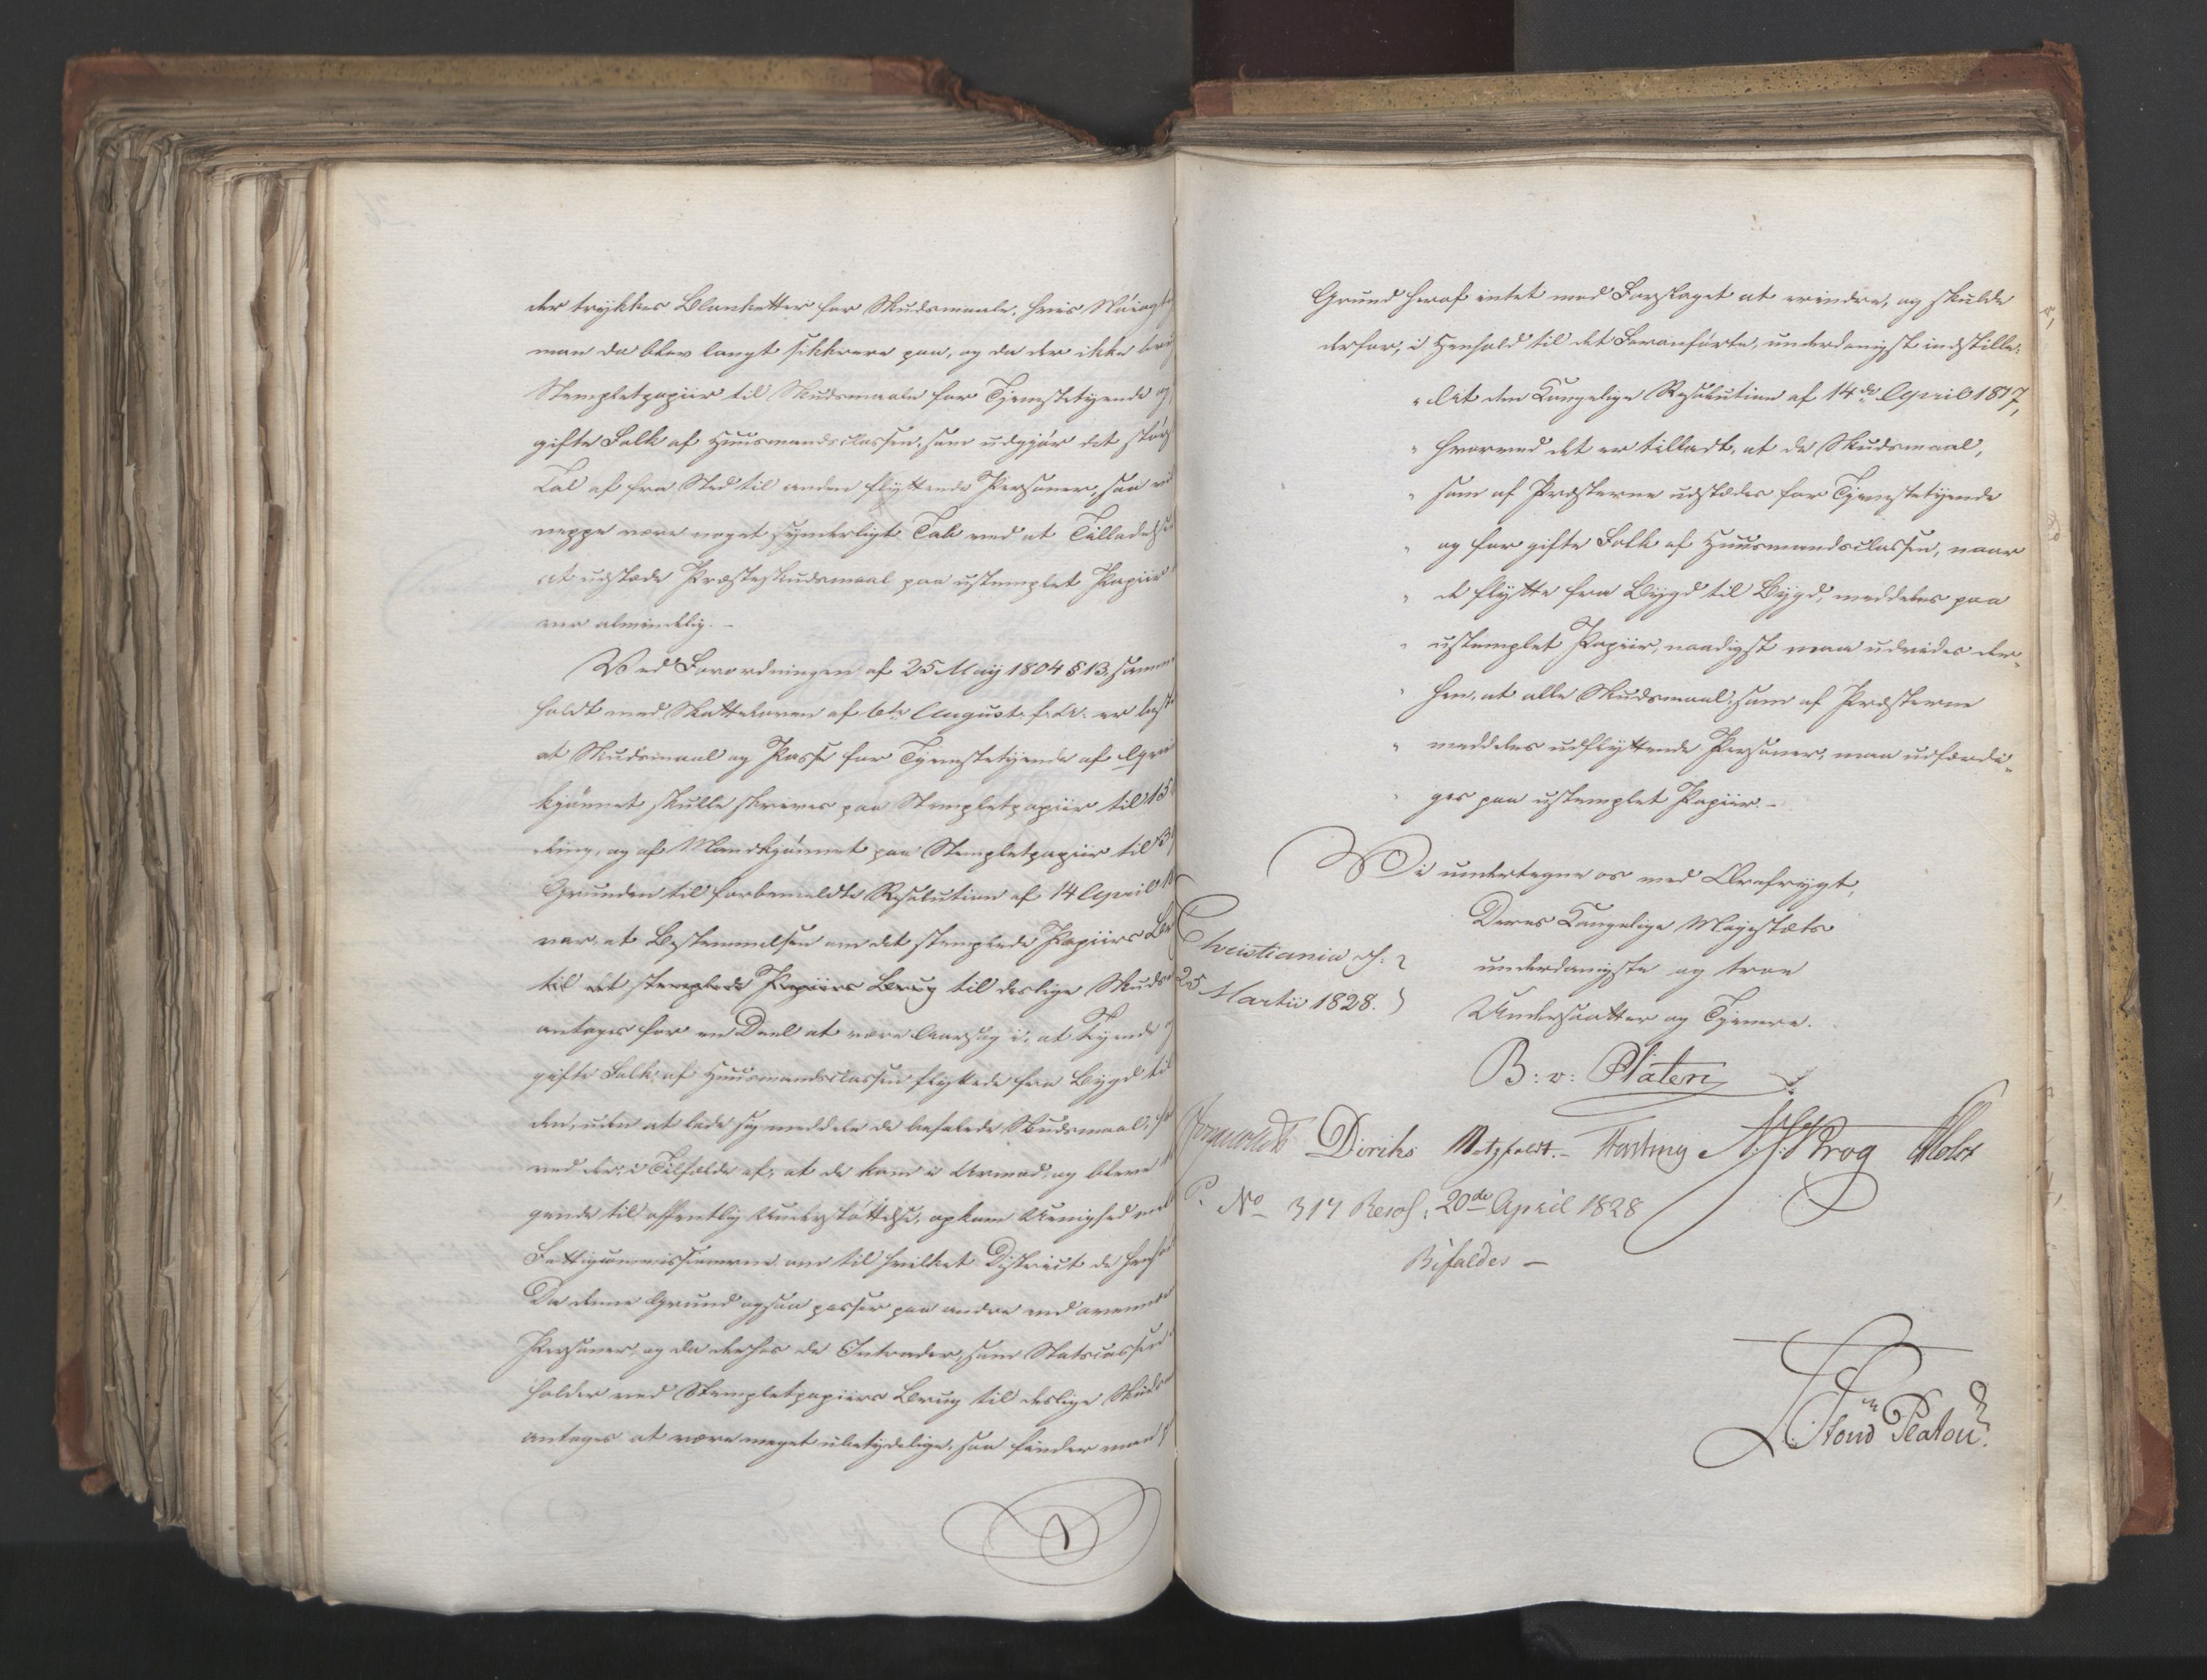 der trykkes Blanketter for Skudsmaale, hvis Nøiagt
man da blev langt sikkrere paa, og da der ikke bru
Stempletpapiir til Skudsmaale for Tjenestetyende og
gifte Folk af Huusmandsclassen, som udgjør det størs
Tal af fra Sted til anden flyttende Personer, saa vil
neppe være noget synderligt Tab ved at Tilladelse
at udstæde Præsteskudsmaal paa ustemplet Papiir
var almindelig. –
Ved Forordningen af 25 May 1804 § 13, samm
holdt med Skatteloven af 6te August f. A. er best
at Skudsmaal og Passe for Tjenestetyende af Qvin
kjønnet skulle skrives paa Stempletpapiir til 15
ling, og af Mandkjønnet paa Stempletpapiir til 3
Grunden til forbemeldte Resolution af 14 April 18
var, at Bestemmelsen om det stemplede Papiirs Br
til det stemplede Papiirs Brug til deslige Skuds
antoges for en Deel at være Aarsag i, at Tyende og
gifte Folk af Huusmandsclassen flyttede fra Bygd til
den, uden at lade sig meddele de befalede Skudsmaal, h
ved der, i Tilfælde af, at de kom i Armod, og bleve
gende til offentlig Understøttelse, opkom Uenighed mel
Fattigcommissionerne om til hvilket District de henh
Da denne Grund ogsaa passer paa andre end ovenme
Personer, og da derhos de Intrader, som Statscassen
holder ved Stempletpapiirs Brug til deslige Skuds
antages at være meget ubetydelige, saa finder man
Grund heraf intet mod Forslaget at erindre, og skulde
derfor, i Henhold til det Foranførte, underdanigst indstille:
" At den Kongelige Resolution af 14de April 1817,
" hvorved det er tilladt, at de Skudsmaal,
" som af Præsterne udstædes for Tjenestetyende
" og for gifte Folk af Huusmandsclassen, naar
" de flytte fra Bygd til Bygd, meddeles paa
" ustemplet Papiir, naadigst maa udvides der-
" hen, at alle Skudsmaal, som af Præsterne
" meddeles udflyttende Personer, maa udfærdi-
" ges paa ustemplet Papiir. –
Vi undertegne os med Ærefrygt,
Deres Kongelige Majestæts
Christiania d.
underdanigste og troe
25 Martii 1828.
Undersaatter og Tjenere.
B: v: Platen
Diriks Motzfeldt. – Fasting Krog Holst
P. No 317 Resol: 20de April 1828
Bifaldes –
Platou